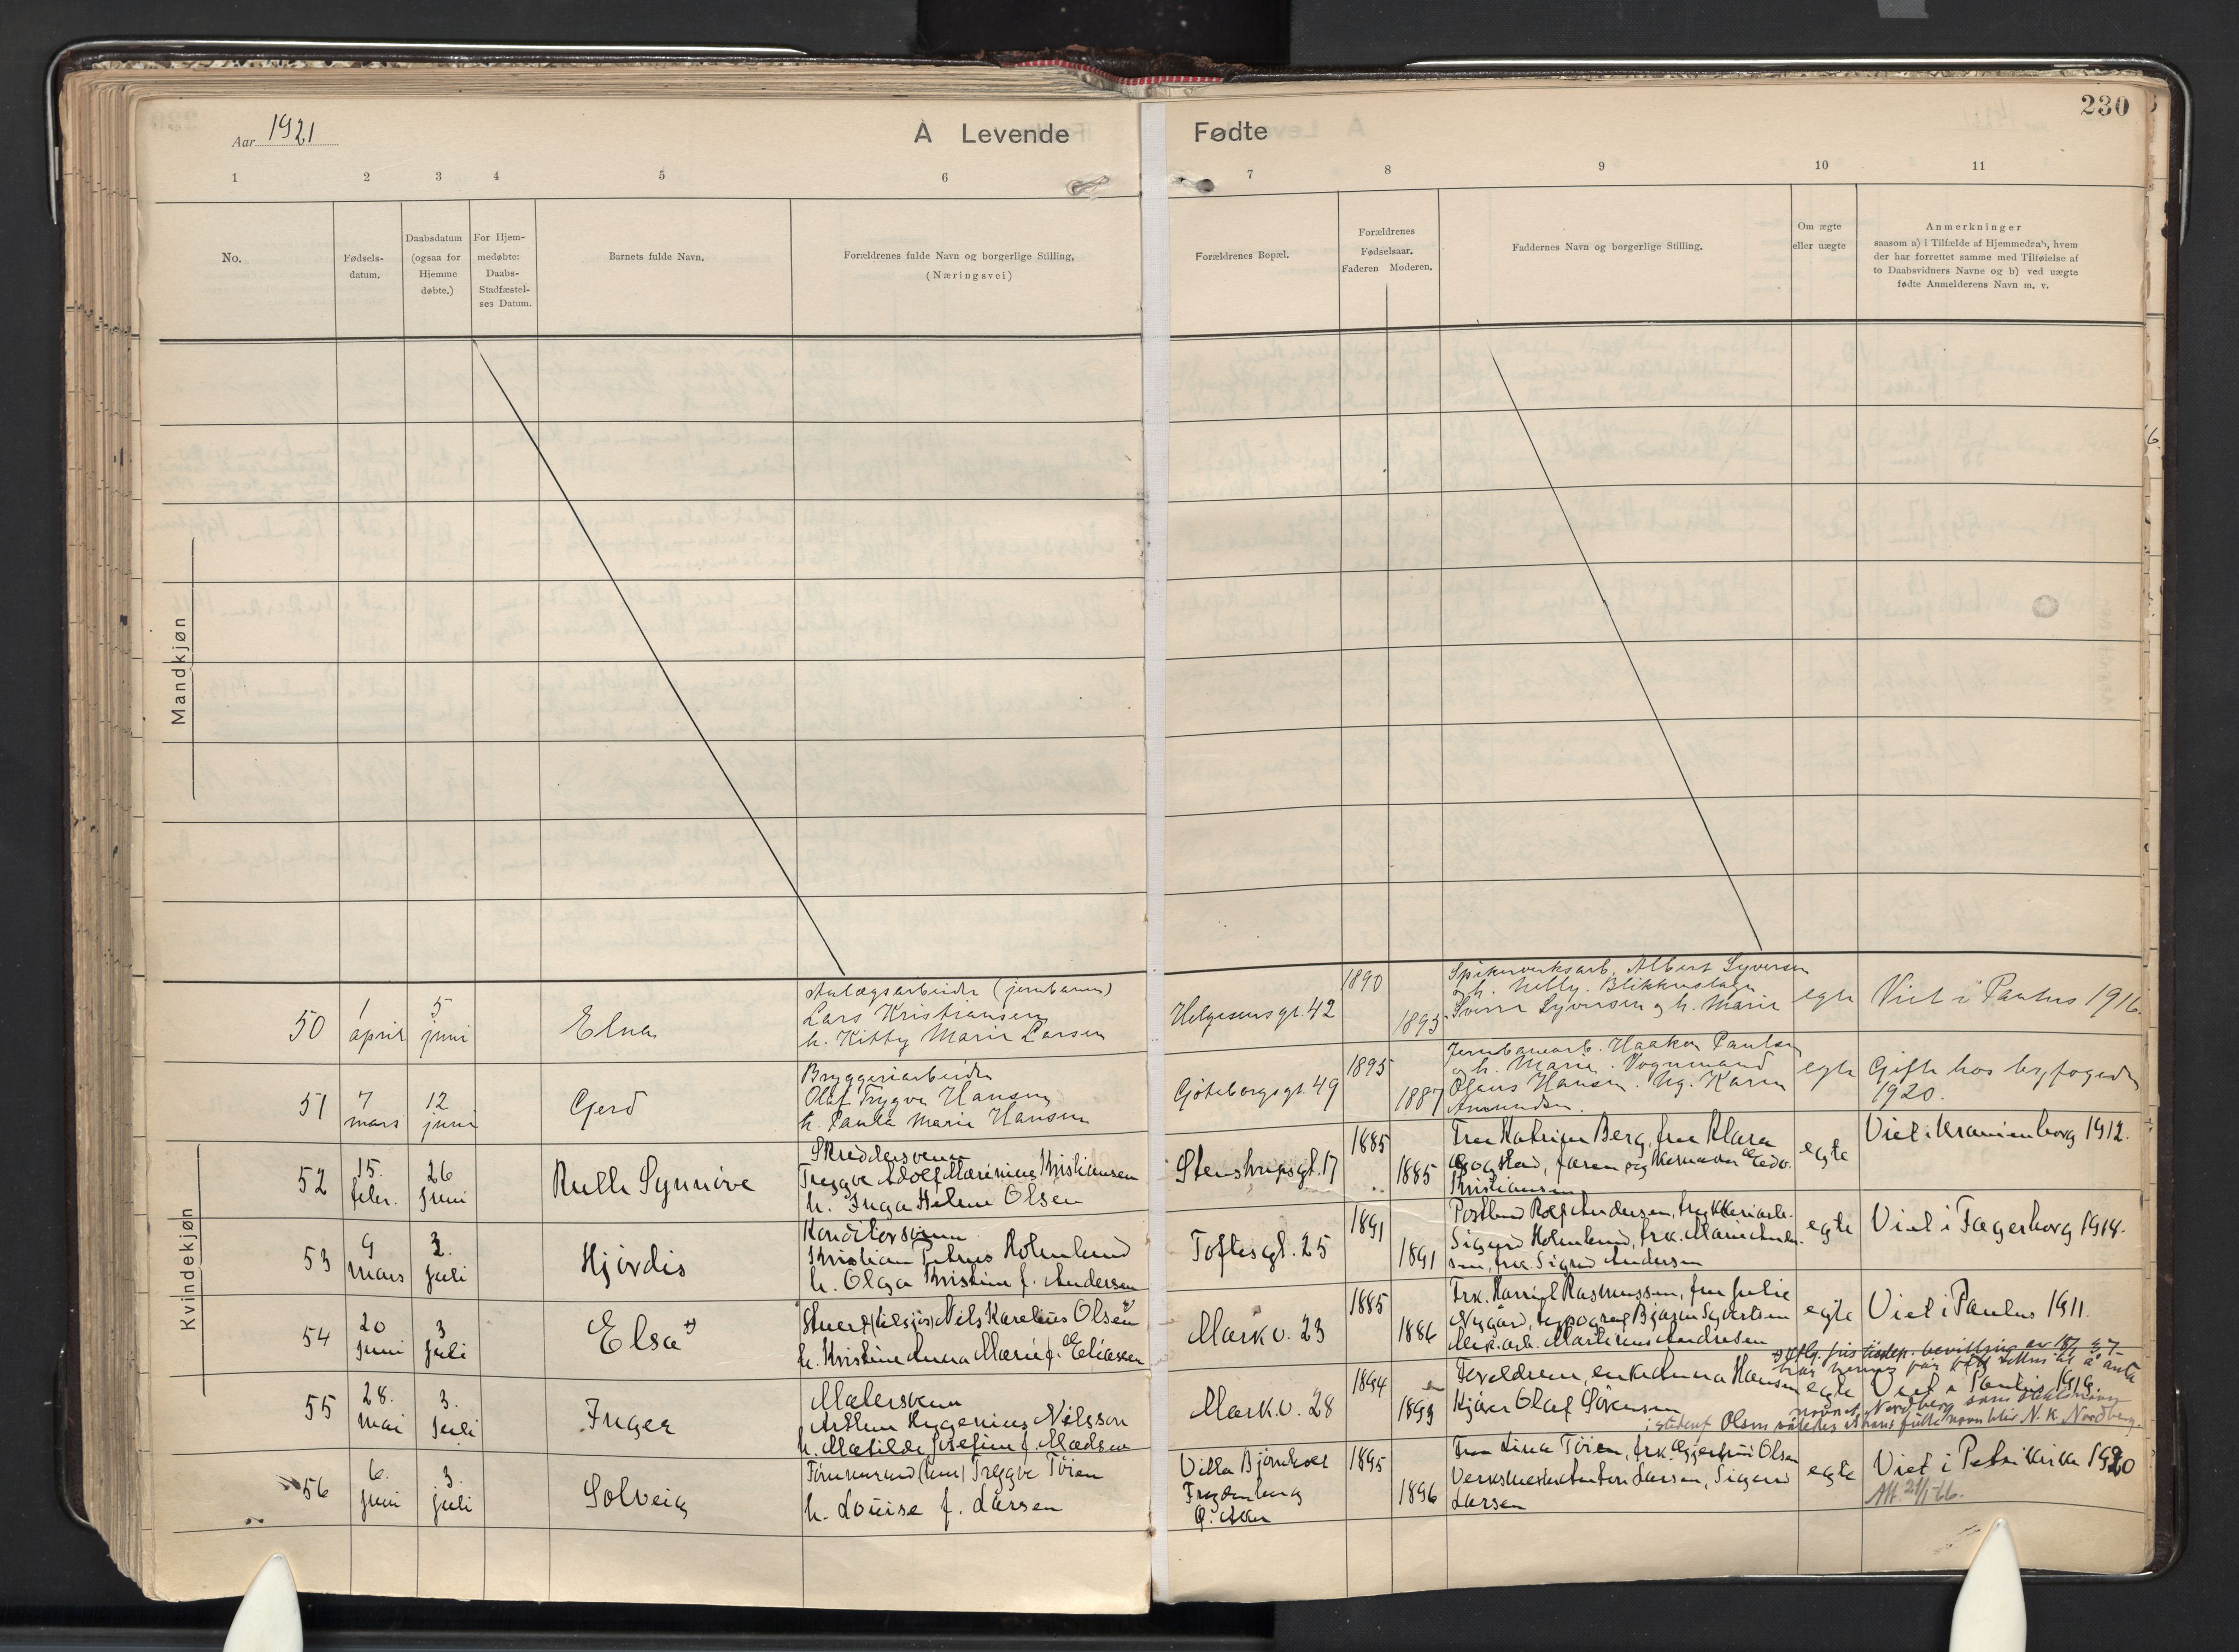 230
Aar 1921
A Levende
Fødte
1 2 3 4 5 6 7 8 9 10 11
No.
Fødsels-
datum.
Daabsdatum
(ogsaa for
Hjemme
døbte.)
For Hjem-
medøbte:
Daabs-
Stadfæstel-
ses Datum.
Barnets fulde Navn.
Forældrenes fulde Navn og borgerlige Stilling,
(Næringsvei)
Forældrenes Bopæl.
Forældrenes
Fødselsaar.
Faderen Moderen.
Faddernes Navn og borgerlige Stilling.
Om ægte
eller uægte
Anmerkninger
saasom a) i Tilfælde af Hjemmedaab, hvem
der har forrettet samme med Tilføielse af
to Daabsvidners Navne og b) ved uægte
fødte Anmelderens Navn m. v.
Mandkjøn
Kvindekjøn
50
1
april
5
juni
Elna
Anlægsarbeider (jernbanen)
Lars Kristiansen
h. Kitty Marie Larsen
Helgesensgt. 42
1890
1895
Spikerverksarb. Albert Syversen
og h. Nelly. Blikkenslager
Sverre Syversen og h. Marie
egte
Viet i Paulus 1916.
51
7
mars
12
juni
Gerd
Bryggeriarbeider
Olaf Trygve Hansen
h. Paula Marie Hansen
Gøteborggt. 49
1895
1887
Jernbanearb. Haakon Paulsen
og h. Marie. Vognmand
Olaus Hansen. Ug. Karen
Amundsen.
egte
Gift hos byfogden
1920.
52
15.
febr.
26
juni
Rulle Synnöve
Skreddersvenn
Trygve Adolf Marinius Kristiansen
h. Inga Helene Olsen
Stenstrupsgt. 17
1885
1885
Fru Katrine Berg, fru Klara
Bogstad, faren og Edv.
Kristiansen
egte
Viet i Uranienborg 1912.
53
9
mars
3.
juli
Hjördis
Konditorsvenn
Kristian Petrus Holmlund
h. Olga Kristine f. Andersen
Toftesgt. 25
1891
1891
Postbud Rolf Andersen, trykkeriarb.
Sigurd Holmlund, frk. Marie Ander-
sen, frk. Sigrid Andersen
egte
Viet i Fagerborg 1914.
54
20
juni
3
juli
Elsa x)
Stuert (tilsjøs) Nils Karelius Olsen x)
h. Kristine Anna Marie f. Eliasen
Markv. 23
1885
1886
Frk. Harriet Rasmussen, fru Julie
Nygård, typograf Bjarne Syvertsen
Mek. arb. Martinius Andresen
egte
Viet i Paulus 1911.
bevilling av
har henns far fått rett til å anta
navnet Nordberg som slektsnavn
istedenf Olsen således at hans fulle navn blir N. K. Nordberg.
55
28.
mai
3.
juli
Inger
Malersvenn
Arthur Eugenius Nilsson
h. Matilde Josefine f. Madsen
Markv. 28
1894
1893
Foreldrene, enke Anna Hansen
Kjører Olaf Sörensen
egte
Viet i Paulus 1916
56
6.
juni
3.
juli
Solveig
Tömmermand Trygve Töien
h. Louise f. Larsen
Villa Björnkoll
Ö. Aker
1895
1896
Fru Lina Töien, frk. Olsen
Verksmester Anton Larsen, Sigurd
Larsen
egte
Viet i Petri kirke 1920
Att. 21/1-66.